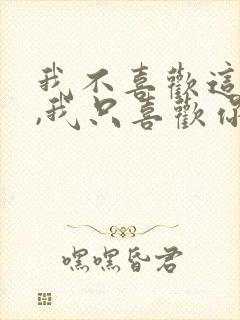 我不喜歡這
,我只喜歡你
嘿嘿昏君